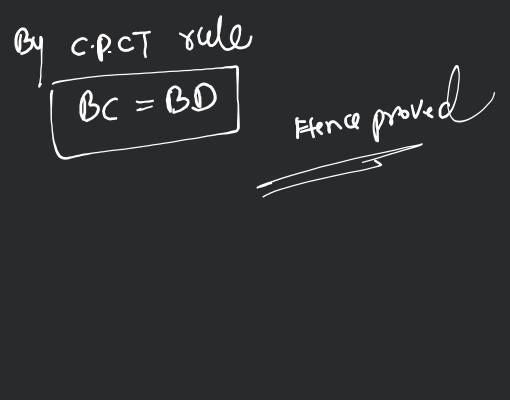 By C.P.CT rule
BC = BD
Hence proved